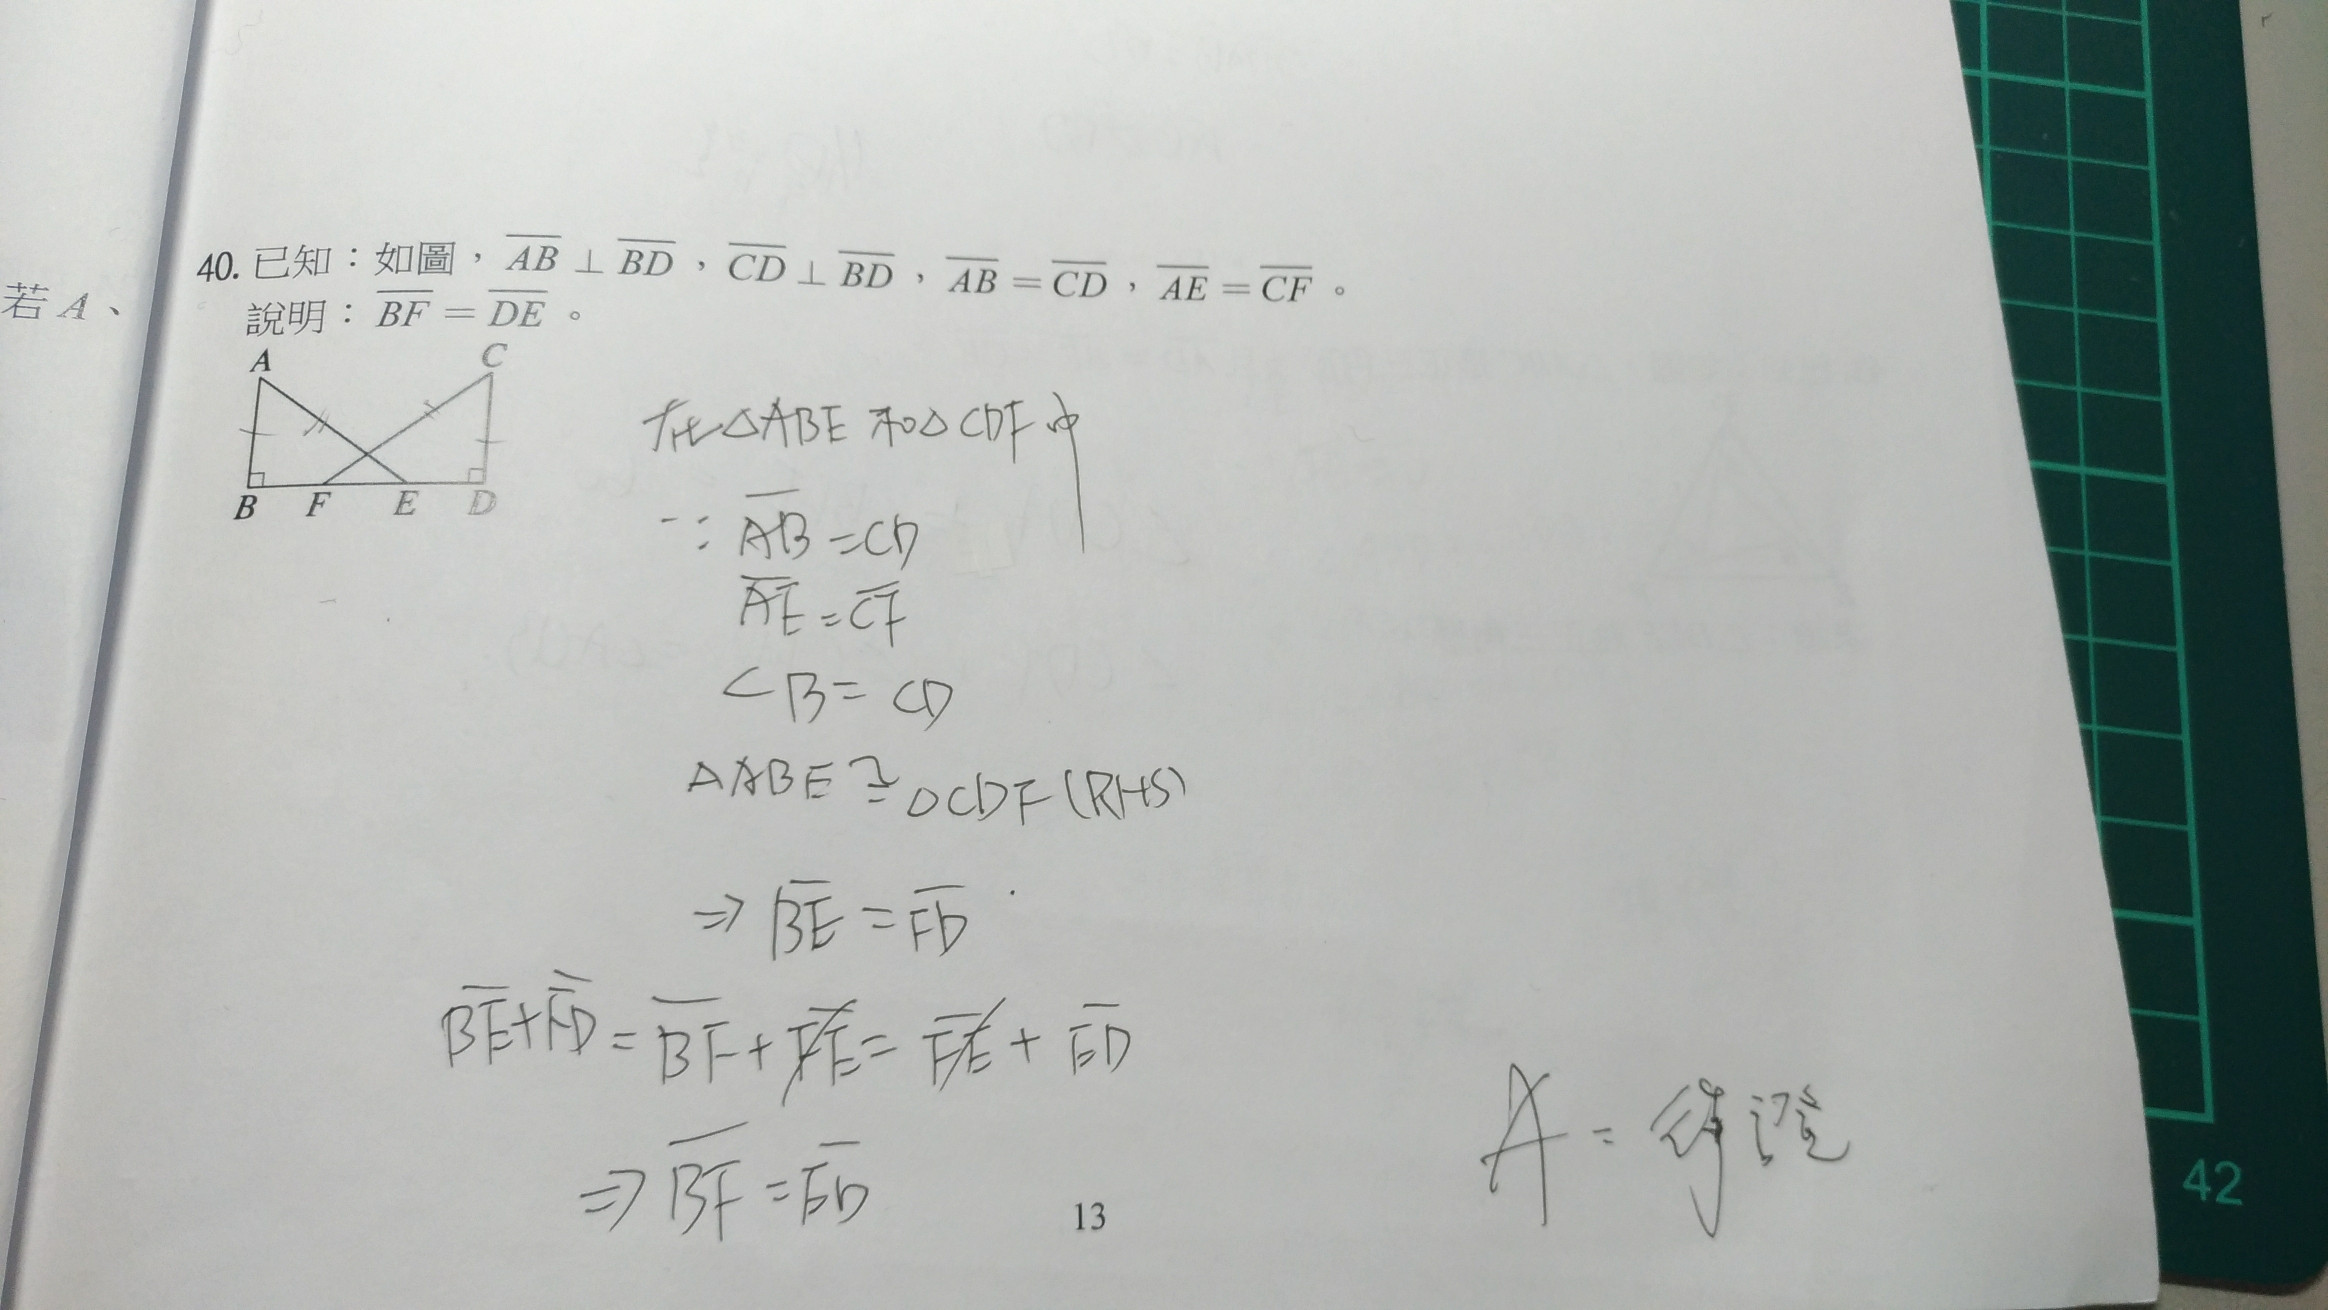 40. 已知：如圖，AB⊥BD，CD⊥BD，AB=CD，AE=CF。
說明：BF=DE。
若A、
A
C
B F E D
在△ABE和△CDF中
∵ AB=CD
AE=CF
∠B=∠D
△ABE≅△CDF(RHS)
⇒ BE=FD
BE+FD=BF+FE=FE+ED
⇒ BF=ED
A=待證
13
42